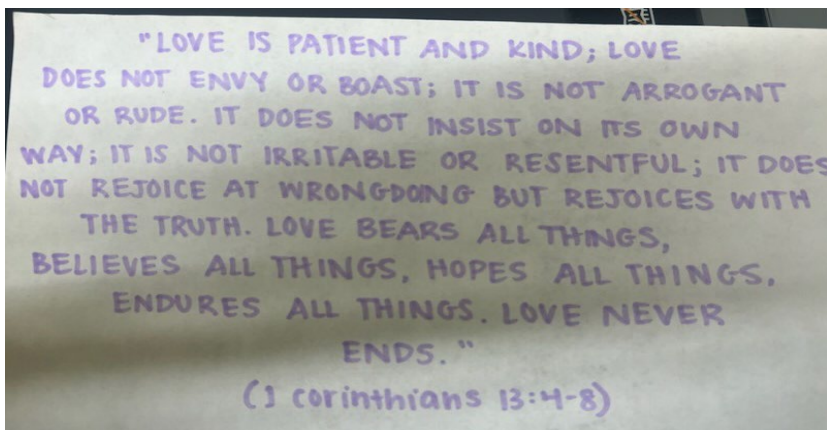 "LOVE IS PATIENT AND KIND; LOVE
DOES NOT ENVY OR BOAST; IT IS NOT ARROGANT
OR RUDE. IT DOES NOT INSIST ON ITS OWN
WAY; IT IS NOT IRRITABLE OR RESENTFUL; IT DOES
NOT REJOICE AT WRONGDOING BUT REJOICES WITH
THE TRUTH. LOVE BEARS ALL THINGS,
BELIEVES ALL THINGS, HOPES ALL THINGS,
ENDURES ALL THINGS. LOVE NEVER
ENDS."
(1 corinthians 13:4-8)